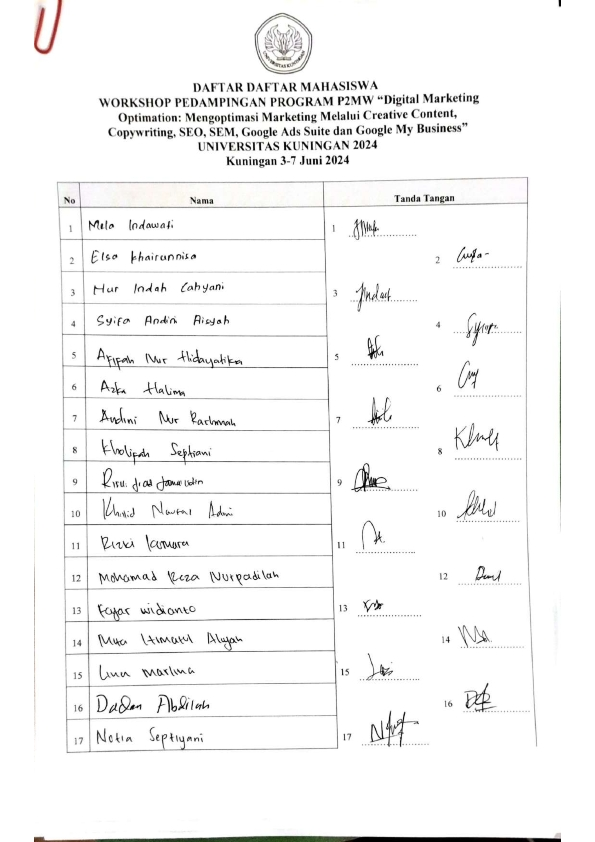 DAFTAR DAFTAR MAHASISWA
WORKSHOP PEDAMPINGAN PROGRAM P2MW “Digital Marketing
Optimation: Mengoptimasi Marketing Melalui Creative Content,
Copywriting, SEO, SEM, Google Ads Suite dan Google My Business”
UNIVERSITAS KUNINGAN 2024
Kuningan 3-7 Juni 2024
No Nama Tanda Tangan
1 Mela Indawati 1
2 Elsa khairunnisa 2
3 Nur Indah Cahyani 3
4 Syifa Andini Aisyah 4
5 Afifah Nur Hidayatika 5
6 Azka Halima 6
7 Andini Nur Rachmah 7
8 Kholifah Septiani 8
9 9
10 Khalid Naufal Adani 10
11 Rizki Kamara 11
12 Mohamad Reza Nurpadilah 12
13 Fajar widianto 13
14 Alujah 14
15 Lina Marlina 15
16 Dadan Abdilah 16
17 Novia Septiyani 17